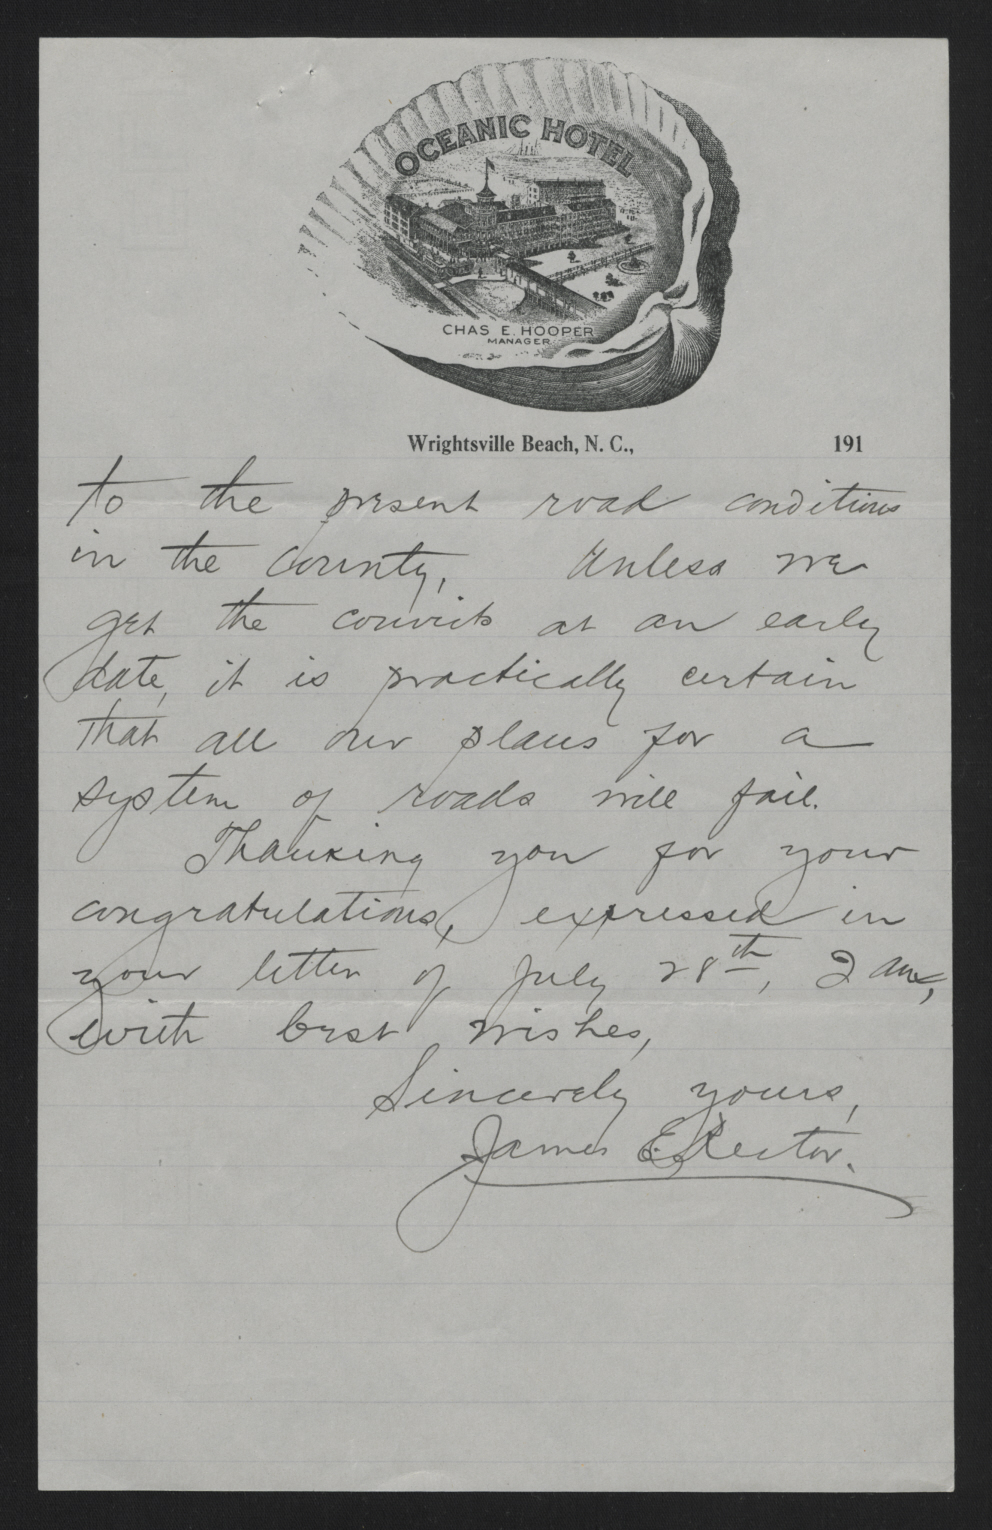 OCEANIC HOTEL
CHAS E. HOOPER
MANAGER
Wrightsville Beach, N. C., 191
to the present road conditions
in the county, Unless we
get the convicts at an early
date, it is practically certain
that all our plans for a
system of roads will fail.
Thanking you for your
congratulations, expressed in
your letter of July 28th, I am,
with best wishes,
Sincerely yours,
James E. Rector.